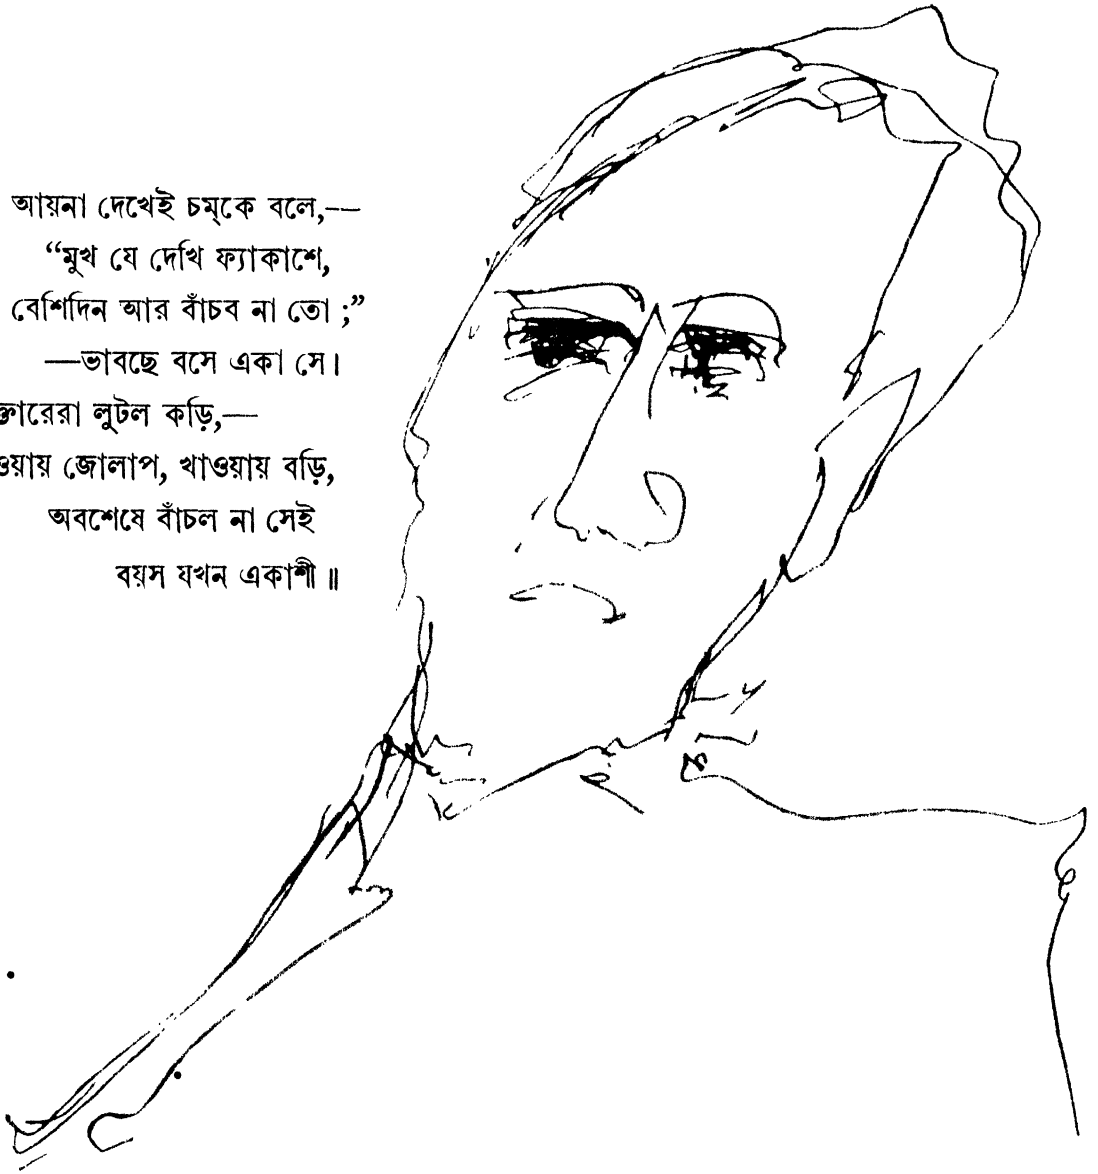 আয়না দেখেই চম্‌কে বলে,—
“মুখ যে দেখি ফ্যাকাশে,
বেশিদিন আর বাঁচব না তো ;”
—ভাবছে বসে একা সে।
ক্তারেরা লুটল কড়ি,—
ওয়ায় জোলাপ, খাওয়ায় বড়ি,
অবশেষে বাঁচল না সেই
বয়স যখন একাশী॥